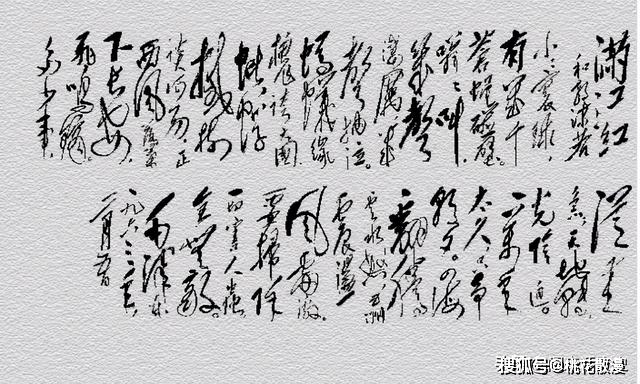 满江红
和郭沫若
小小寰球,
有几个
苍蝇碰壁。
嗡嗡叫,
几声
凄厉,几
声抽泣。
蚂蚁缘
槐夸大国,
蚍蜉
撼树
谈何易。正
西风落叶
下长安,
飞鸣镝。
多少事,
从来
急,天地转,
光阴迫。
一万年
太久,只争
朝夕。四海
翻腾
云水怒,五洲
震荡
风雷激。
要扫除
一切害人虫,
全无敌。
毛泽东
一九六三年
二月五日
搜狐号@桃花散漫